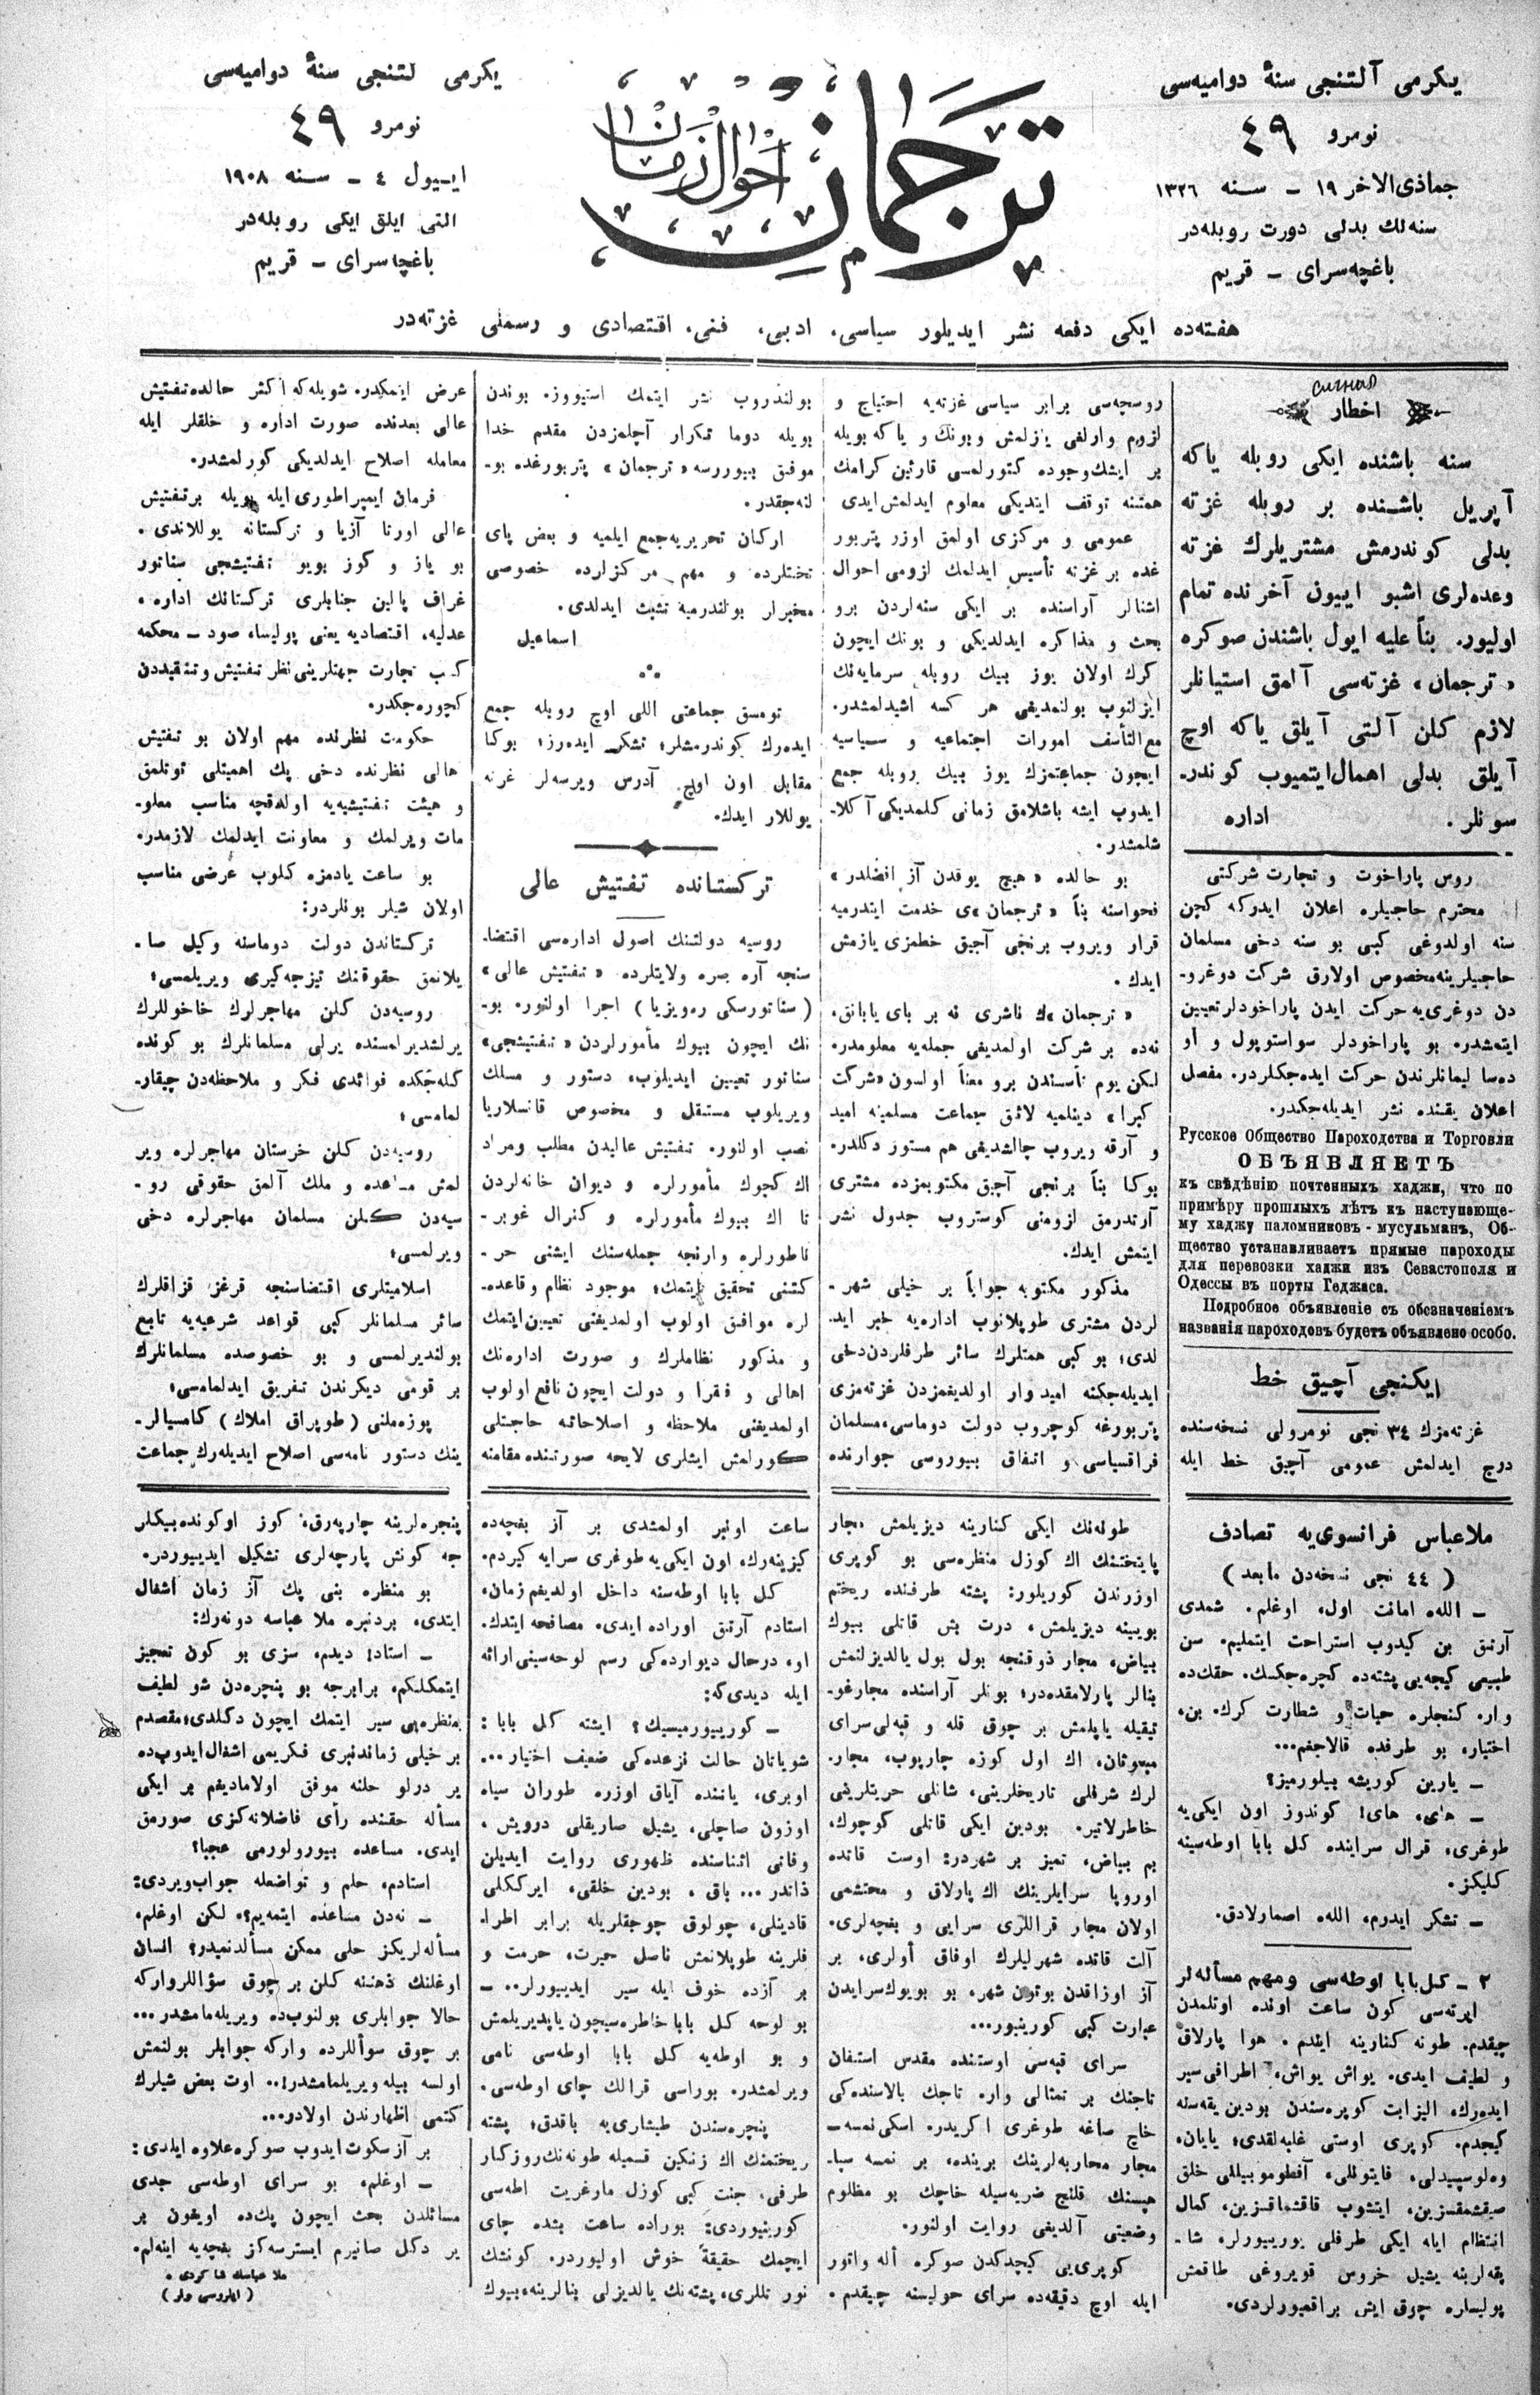 يكرمى آلتنجى سنۀ دواميه‌سى
نومرو ٤٩
جماذى الاخر ١٩ - سنه ١٣٢٦
سنه‌لك بدلى دورت روبله‌در
باغچه‌سراى - قريم
ترجمان
احوال زمان
يكرمى لتنجى سنۀ دواميه‌سى
نومرو ٤٩
اييول ٤ - سنه ١٩٠٨
التى ايلق ايكى روبله‌در
باغچه‌سراى - قريم
هفته‌ده ايكى دفعه نشر ايديلور سياسى، ادبى، فنى، اقتصادى و رسملى غزته‌در
اخطار
سنه باشنده ايكى روبله ياكه
آپريل باشنده بر روبله غزته
بدلى كوندرمش مشتريلرك غزته
وعده‌لرى اشبو اييون آخرنده تمام
اوليور. بناً عليه ايول باشندن صوكره
«ترجمان» غزته‌سى آلمق استيانلر
لازم كلن آلتى آيلق ياكه اوچ
آيلق بدلى اهمال ايتميوب كوندر-
سونلر. اداره
روس پاراخوت و تجارت شركتى
محترم حاجيلره اعلان ايدركه كچن
سنه اولدوغى كبى بو سنه دخى مسلمان
حاجيلرينه مخصوص اولارق شركت دوغرو-
دن دوغرى‌يه حركت ايدن پاراخودلر تعيين
ايتمشدر. بو پاراخودلر سواستوپول و أو
ده‌سا ليمانلرندن حركت ايده‌جكلردر. مفصل
اعلان يقنده نشر ايديله‌جكدر.
Русское Общество Пароходства и Торговли
ОБЪЯВЛЯЕТЪ
къ свѣдѣнію почтенныхъ хаджи, что по
примѣру прошлыхъ лѣтъ къ наступающе-
му хаджу паломниковъ-мусульманъ, Об-
щество устанавливаетъ прямые пароходы
для перевозки хаджи изъ Севастополя и
Одессы въ порты Геджаса.
Подробное объявленіе съ обозначеніемъ
названія пароходовъ будетъ объявлено особо.
ايكنجى آچيق خط
غزته‌مزك ٣٤ نجى نومرولى نسخه‌سنده
درج ايدلمش عمومى آچيق خط ايله
روسچه‌سى برابر سياسى غزته‌يه احتياج و
لزوم وارلغى يازلمش و بونك و ياكه بويله
بر ايشك وجوده كتورلمسى قارئين كرامك
همتنه توقف ايتديكى معلوم ايدلمش ايدى
عمومى و مركزى اولمق اوزر پتربور
غده بر غزته تأسيس ايدلمك لزومى احوال
اشنالر آراسنده بر ايكى سنه‌لردن برو
بحث و مذاكره ايدلديكى و بونك ايچون
كرك اولان يوز بيك روبله سرمايه‌نك
ايزلنوب بولنمديغى هر كسه اشيدلمشدر.
مع التأسف امورات اجتماعيه و سياسيه
ايچون جماعتمزك يوز بيك روبله جمع
ايدوب ايشه باشلامق زمانى كلمديكى آكلا-
شلمشدر.
بو حالده «هيچ يوقدن آز افضلدر»
فحواسنه بناً «ترجمان»ى خدمت ايتدرميه
قرار ويروب برنجى آچيق خطمزى يازمش
ايدك.
«ترجمان»ك ناشرى نه بر باى يابانق،
نه‌ده بر شركت اولمديغى جمله‌يه معلومدر.
ليكن يوم تأسسندن برو معناً اولسون «شركت
كبرا» دينلميه لائق جماعت مسلمينه اميد
و آرقه ويروب چالشديغى هم مستور دكلدر.
بوكا بناً برنجى آچيق مكتوبمزده مشترى
آرتدرمق لزومنى كوستروب جدول نشر
ايتمش ايدك.
مذكور مكتوبه جواباً بر خيلى شهر-
لردن مشترى طوپلانوب اداره‌يه خبر ايد-
لدى؛ بو كبى همتلرك سائر طرفلردن دخى
ايديله‌جكنه اميدوار اولديغمزدن غزته‌مزى
پتربورغه كوچروب دولت دوماسى، مسلمان
فراقسياسى و اتفاق بيوروسى جوارنده
بولندروب نشر ايتمك استيورز. بوندن
بويله دوما تكرار آچلمزدن مقدم خدا
موفق بيوررسه «ترجمان» پتربورغده بو-
لنه‌جقدر.
اركان تحريريه جمع ايلميه و بعض پاى
تختلرده و مهم مركزلرده خصوصى
مخبرلر بولندرميه تشبث ايدلدى.
اسماعيل
تومسق جماعتى اللى اوچ روبله جمع
ايده‌رك كوندرمشلر؛ تشكر ايده‌رز؛ بوكا
مقابل اون اوچ آدرس ويرسه‌لر غزته
يوللار ايدك.
تركستانده تفتيش عالى
روسيه دولتنك اصول اداره‌سى اقتضا-
سنجه آره صره ولايتلرده «تفتيش عالى»
(سناتورسكى ره‌ويزيا) اجرا اولنور. بو-
نك ايچون بيوك مأمورلردن «تفتيشجى»
سناتور تعيين ايديلوب، دستور و مسلك
ويريلوب مستقل و مخصوص قانسلاريا
نصب اولنور. تفتيش عاليدن مطلب و مراد
اك كچوك مأمورلره و ديوان خانه‌لردن
تا اك بيوك مأمورلره و كنرال غوبر-
ناطورلره وارنجه جمله‌سنك ايشنى حر-
كتنى تحقيق ايتمك؛ موجود نظام و قاعده-
لره موافق اولوب اولمديغنى تعيين ايتمك
و مذكور نظاملرك و صورت اداره‌نك
اهالى و فقرا و دولت ايچون نافع اولوب
اولمديغنى ملاحظه و اصلاحاته حاجتلى
كورلمش ايشلرى لايحه صورتنده مقامنه
عرض ايتمكدر. شويله‌كه اكثر حالده تفتيش
عالى بعدنده صورت اداره و خلقلر ايله
معامله اصلاح ايدلديكى كورلمشدر.
فرمان ايمپراطورى ايله بويله بر تفتيش
عالى اورتا آزيا و تركستانه يوللاندى.
بو ياز و كوز بويو تفتيشجى سناتور
غراف پالين جنابلرى تركستانك اداره،
عدليه، اقتصاديه يعنى پوليسا، صود - محكمه
كسب تجارت جهتلرينى نظر تفتيش و تنقيددن
كچوره‌جكدر.
حكومت نظرنده مهم اولان بو تفتيش
هالى نظرنده دخى پك اهميتلى توتلمق
و هيئت تفتيشيه‌يه اولدقچه مناسب معلو-
مات ويرلمك و معاونت ايدلمك لازمدر.
بو ساعت يادمزه كلوب عرضى مناسب
اولان شيلر بونلردر:
تركستاندن دولت دوماسنه وكيل صا-
يلانمق حقوقنك تيزجه كيرى ويريلمسى؛
روسيه‌دن كلن مهاجرلرك خاخوللرك
يرلشديرلمسنده يرلى مسلمانلرك بو كونده
كله‌جكده فوائدى فكر و ملاحظه‌دن چيقار-
لمامسى؛
روسيه‌دن كلن خرستان مهاجرلره وير
لمش مساعده و ملك آلمق حقوقى رو-
سيه‌دن كلن مسلمان مهاجرلره دخى
ويرلمسى؛
اسلاميتلرى اقتضاسنجه قرغز قزاقلرك
سائر مسلمانلر كبى قواعد شرعيه‌يه تابع
بولنديرلمسى و بو خصوصده مسلمانلرك
بر قومى ديكرندن تفريق ايدلمامسى؛
پوزه‌ملنى (طوپراق املاك) كامسيالر-
ينك دستور نامه‌سى اصلاح ايديله‌رك جماعت
ملا عباس فرانسوى‌يه تصادف
(٤٤ نجى نسخه‌دن مابعد)
- الله‌ه امانت اول، اوغلم. شمدى
آرتق بن كيدوب استراحت ايتمليم. سن
طبيعى كيجه‌يى پشته‌ده كچره‌جكسك. حقك‌ده
وار. كنجلره حيات و شطارت كرك. بن،
اختيار، بو طرفده قالاجغم...
- يارين كوريشه بيلورميز؟
- هاى، هاى! كوندوز اون ايكى‌يه
طوغرى، قرال سراينده كل بابا اوطه‌سينه
كليكز.
- تشكر ايدرم، الله‌ه اصمارلادق.
٢ - كل بابا اوطه‌سى و مهم مسأله‌لر
ايرته‌سى كون ساعت اونده اوتلمدن
چيقدم. طونه كنارينه ايندم. هوا پارلاق
و لطيف ايدى. يواش يواش، اطرافى سير
ايده‌رك، اليزابت كوپره‌سندن بودين يقه‌سنه
كيجدم. كوپرى اوستى غلبه‌لقدى؛ يايان،
وه‌لوسيپيدلى، فايتونلى، آفطوموبيللى خلق
صيقشمقسزين، ايتشوب قاقشماقسزين، كمال
انتظام ايله ايكى طرفلى يورييورلر. شا-
پقه‌لرينه يشيل خروس قويروغى طاقمش
پوليسلره چوق ايش براقميورلردى.
طونه‌نك ايكى كنارينه ديزيلمش مجار
پايتختنك اك كوزل منظره‌سى بو كوپرى
اوزرندن كوريلور: پشته طرفنده ريختم
بويينه ديزيلمش، درت بش قاتلى بيوك
بياض، مجار ذوقنجه بول بول يالديزلنمش
بنالر پارلامقده‌در؛ بونلر آراسنده مجار غو-
تيقيله ياپلمش بر چوق قله و قبه‌لى سراى
مبعوثان، اك اول كوزه چارپوب، مجار-
لرك شرفلى تاريخلرينى، شانلى حريتلرينى
خاطرلاتير. بودين ايكى قاتلى كوچوك،
بم بياض، تميز بر شهردر: اوست قاتده
اوروپا سرايلرينك اك پارلاق و محتشمى
اولان مجار قراللرى سرايى و بغچه‌لرى.
آلت قاتده شهرليلرك اوفاق أولرى. بر
آز اوزاقدن بوتون شهر، بو بويوك سرايدن
عبارت كبى كورينيور...
سراى قبه‌سى اوستنده مقدس استفان
تاجنك بر تمثالى وار. تاجك بالاسنده‌كى
خاچ صاغه طوغرى اكريدر. اسكى نمسه-
مجار محاربه‌لرينك برينده، بر نمسه سپا-
هيسنك قلنج ضربه‌سيله خاچك بو مظلوم
وضعيتى آلديغى روايت اولنور.
كوپرى‌يى كيچدكدن صوكره أله واتور
ايله اوچ دقيقه‌ده سراى حوليسنه چيقدم.
ساعت اونبر اولمشدى بر آز بغچه‌ده
كيزينه‌رك، اون ايكى‌يه طوغرى سرايه كيردم.
كل بابا اوطه‌سنه داخل اولديغم زمان،
استادم آرتق اوراده ايدى. مصافحه ايتدك.
او، درحال ديوارده‌كى رسم لوحه‌سينى ارائه
ايله ديدى‌كه:
- كورييورميسيك؟ ايشته كل بابا:
شو ياتان حالت نزعده‌كى ضعيف اختيار...
اوبرى، ياننده آياق اوزره طوران سياه
اوزون صاچلى، يشيل صاريقلى درويش،
وفاتى اثناسنده ظهورى روايت ايديلن
ذاتدر... باق، بودين خلقى، ايركلكى
قادينلى، چولوق چوجقلريله برابر اطرا-
فلرينه طوپلانمش ناصل حيرت، حرمت و
بر آزده خوف ايله سير ايدييورلر.. -
بو لوحه كل بابا خاطره‌سيچون ياپديريلمش
و بو اوطه‌يه كل بابا اوطه‌سى نامى
ويرلمشدر. بوراسى قرالك چاى اوطه‌سى.
پنچره‌سندن طيشارى‌يه باقدق؛ پشته
ريختمنك اك زنكين قسميله طونه‌نك روزكار
طرفى، جنت كبى كوزل مارغريت اطه‌سى
كورينيوردى: بوراده ساعت بشده چاى
ايچمك حقيقةً خوش اوليوردر. كونشك
نور تللرى، پشته‌نك يالديزلى بنالرينه، بيوك
پنجره‌لرينه چارپه‌رق، كوز اوكونده بيكلر
جه كونش پارچه‌لرى تشكيل ايدييوردر.
بو منظره بنى پك آز زمان اشغال
ايتدى، بردنبره ملا عباسه دونه‌رك:
- استاد! ديدم، سزى بو كون تعجيز
ايتمكلكم، برابرجه بو پنچره‌دن شو لطيف
منظره‌يى سير ايتمك ايچون دكلدى؛ مقصدم
بر خيلى زماندنبرى فكريمى اشغال ايدوب‌ده
بر درلو حلنه موفق اولاماديغم بر ايكى
مسأله حقنده رأى فاضلانه‌كزى صورمق
ايدى. مساعده بيورولورمى عجبا؟
استادم، حلم و تواضعله جواب ويردى:
- نه‌دن مساعده ايتمه‌يم؟، لكن اوغلم،
مسأله‌لريكز حلى ممكن مسألدنميدر؟ انسان
اوغلنك ذهننه كلن بر چوق سؤاللر واركه
حالا جوابلرى بولنوب‌ده ويريله‌مامشدر...
بر چوق سوأللرده واركه جوابلر بولنمش
اولسه بيله ويريلمامشدر!.. اوت بعض شيلرك
كتمى اظهارندن اولادر...
بر آز سكوت ايدوب صوكره علاوه ايلدى:
- اوغلم، بو سراى اوطه‌سى جدى
مسائلدن بحث ايچون پك‌ده اويغون بر
ير دكل صانيرم ايسترسه‌كز بغچه‌يه اينه‌لم.
ملا عباسك شاكردى.